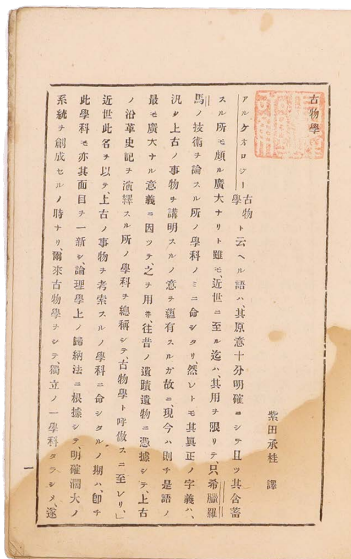 古物學
柴田承桂 譯
アルケオロジー古物學ト云ヘル語ハ、其原意十分明確ニシテ且ツ其含蓄
スル所モ頗ル廣大ナリト雖モ、近世ニ至ル迄ハ、其用ヲ限リテ、只希臘羅
馬ノ技術ヲ論スル所ノ學科ノミニ命シタリ、然レトモ其眞正ノ字義ハ、
汎ク上古ノ事物ヲ講明スルノ意ヲ蘊有スルガ故ニ、現今ハ則チ是語ノ
最モ廣大ナル意義ニ因ツテ、之ヲ用井、往昔ノ遺蹟遺物ニ憑據シテ、上古
ノ沿革史記ヲ演繹スル所ノ學科ヲ總稱シテ、古物學ト呼做スニ至レリ、
近世此名ヲ以テ、上古ノ事物ヲ考索スルノ學科ニ命シタルノ期ハ、卽チ
此學科モ亦其面目ヲ一新シ、論理學上ノ歸納法ニ根據シテ、明確濶大ノ
系統ヲ創成セルノ時ナリ、爾來古物學ヲシテ、獨立ノ一學科タラシメ、遂
一